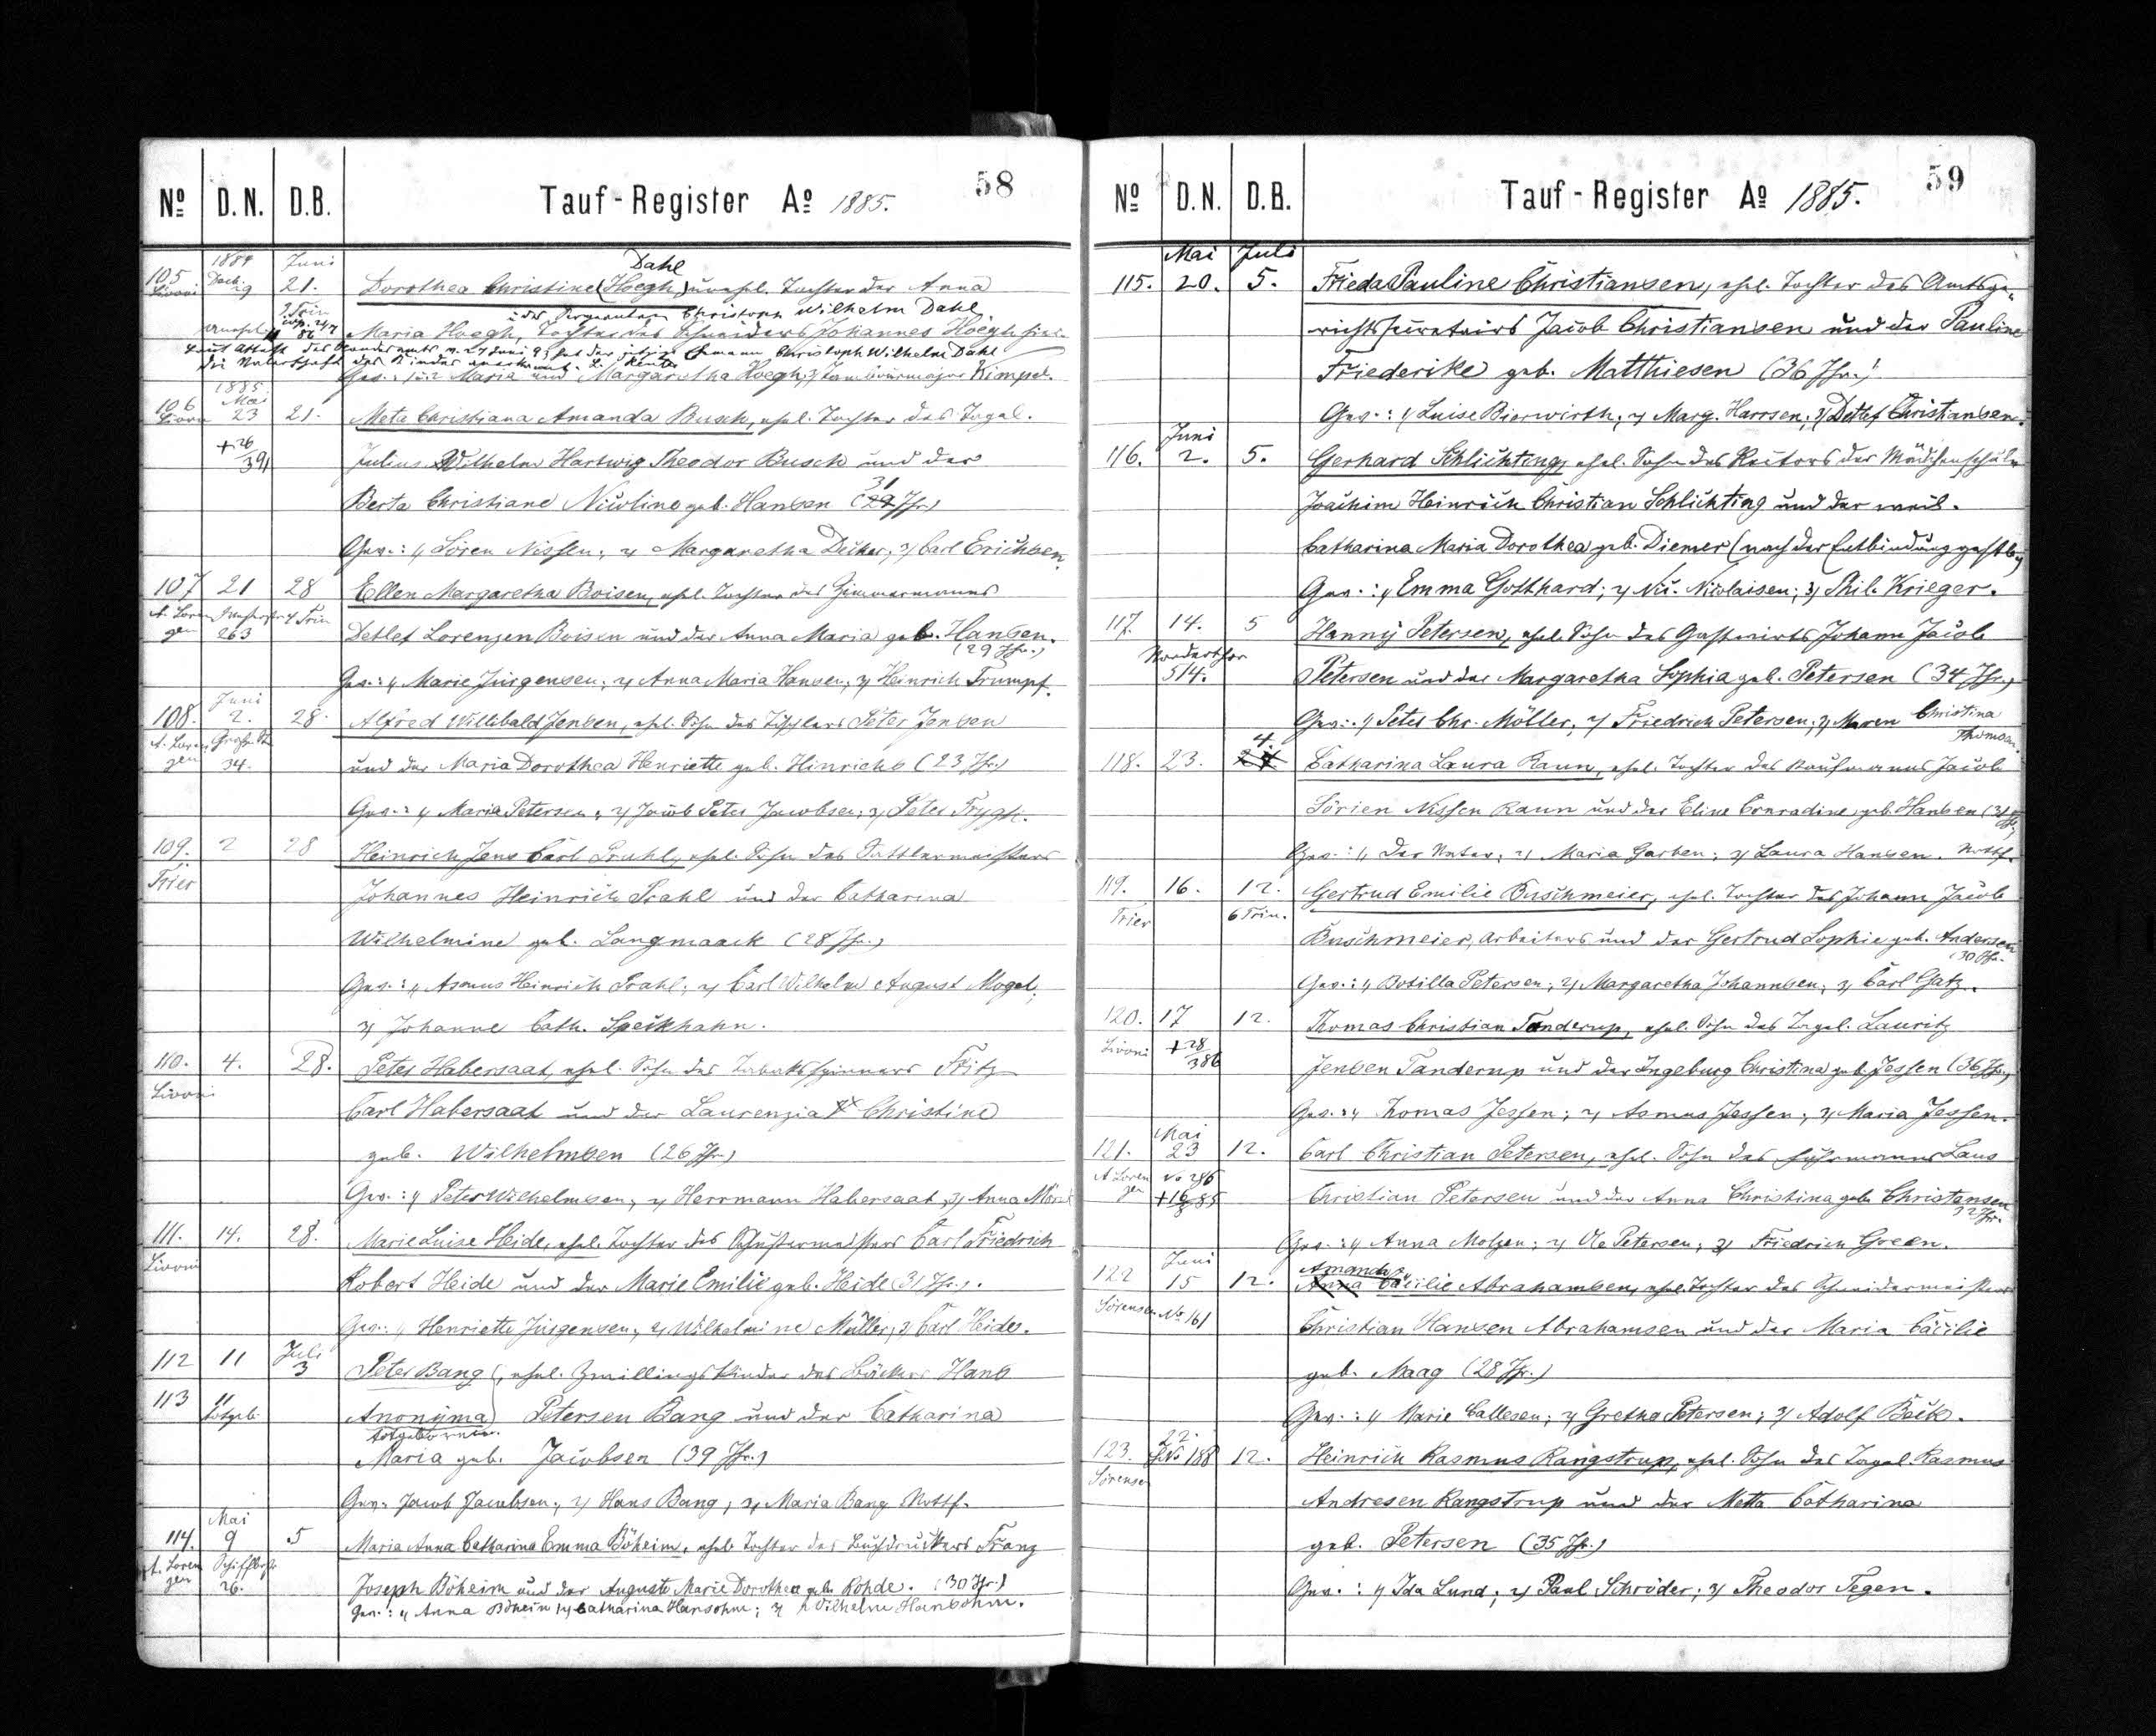 58
No D.N. D.B. Tauf-Register Ao 1885.
1884 Juni
Dahl
105 Dech. 19 21. Dorothea Christine (Hoegh,) unehel. Tochter der Anna
Livoni
u. des Sergeanten Christoph Wilhelm Dahl.
Maria Hoegh, Tochter des Schneiders Johannes Hoegh hies.
Laut Attest des Standesamts v. 27 Juni 85 hat der jetzige Ehemann Christoph Wilhelm Dahl
die Vaterschaft des Kindes anerkannt.
Gev.: 1 u. 2 Maria und Margaretha Hoegh; 3, Tambourmajor Kimpel.
1885
Mai
106 23 21. Meta Christiana Amanda Busch, ehel. Tochter des Tagel.
Livoni
+26/391 Julius Wilhelm Hartwig Theodor Busch und der
31
Berta Christiane Nicoline geb. Hansen (29 Jhr.)
Gev.: 1, Sören Nissen; 2, Margaretha Decker; 3, Carl Erichsen.
107 21 28 Ellen Margaretha Boisen, ehel. Tochter des Zimmermanns
A. Lorenzen 4 Trin
263 Detlef Lorenzen Boisen und der Anna Maria geb. Hansen.
(29 Jhr.)
Gev.: 1, Marie Jürgensen; 2, Anna Maria Hansen; 3, Heinrich Trumpf.
Juni
108. 2. 28. Alfred Willibald Jensen, ehel. Sohn des Tischlers Peter Jensen
A. Lorenzen Große Str.
34. und der Maria Dorothea Henriette geb. Hinrichs (23 Jhr.)
Gev.: 1, Maria Petersen; 2, Jacob Peter Jacobsen; 3, Peter Frygh.
109. 2 28 Heinrich Jens Carl Prahl, ehel. Sohn des Sattlermeisters
Trier
Johannes Heinrich Prahl und der Catharina
Wilhelmine geb. Langmaack (28 Jhr.)
Gev.: 1, Asmus Heinrich Prahl; 2, Carl Wilhelm August Mogel;
3, Johanne Cath. Speckhahn.
110. 4. 28. Peter Habersaat, ehel. Sohn des Tabakspinners Fritz
Livoni
Carl Habersaat und der Laurenzia Christine
geb. Wilhelmsen (26 Jhr.)
Gev.: 1, Peter Wilhelmsen; 2, Herrmann Habersaat; 3, Anna
111. 14. 28. Marie Luise Heide, ehel. Tochter des Schustermeisters Carl Friedrich
Livoni
Robert Heide und der Marie Emilie geb. Heide (31 Jhr.).
Gev.: 1, Henriette Jürgensen; 2, Wilhelmine Müller; 3, Carl Heide.
Juli
112 11 3 Peter Bang, ehel. Zwillingskinder des Bäckers Hans
113 11 Anonyma Petersen Bang und der Catharina
totgeb. totgeboren.
Maria geb. Jacobsen (39 Jhr.)
Gev. Jacob Jacobsen; 2, Hans Bang; 3, Maria Bang Nottf.
Mai
114. 9 5 Maria Anna Catharina Emma Böheim, ehel. Tochter des Buchdruckers Franz
A. Lorenzen
26. Joseph Böheim und der Auguste Marie Dorothea geb. Rohde. (30 Jhr.)
Gev.: 1, Anna Böheim; 2, Catharina Hansohm; 3, Wilhelm Hansohm.
59
No D.N. D.B. Tauf-Register Ao 1885.
Mai Juli
115. 20. 5. Frieda Pauline Christiansen, ehel. Tochter des Amtsge-
richtssecretairs Jacob Christiansen und der Pauline
Friederike geb. Matthiesen (36 Jhr.)
Gev.: 1, Luise Bierwirth; 2, Marg. Harrsen; 3, Detlef Christiansen.
Juni
116. 2. 5. Gerhard Schlichting, ehel. Sohn des Rectors der Mädchenschule
Joachim Heinrich Christian Schlichting und der weil.
Catharina Maria Dorothea geb. Diemer (nach der Entbindung gestb.)
Gev.: 1, Emma Gotthard; 2, Nic. Nicolaisen; 3, Phil. Krieger.
117. 14. 5 Hanny Petersen, ehel. Sohn des Gastwirts Johann Jacob
Norderthor
514. Petersen und der Margaretha Sophia geb. Petersen (34 Jhr.)
Gev.: 1, Peter Chr. Möller; 2, Friedrich Petersen; 3, Maren Christina
Thomsen.
4.
118. 23. Catharina Laura Raun, ehel. Tochter des Kaufmanns Jacob
Sörien Nissen Raun und der Eline Conradine, geb. Hansen (31 Jhr.)
Gev.: 1, Der Vater; 2, Maria Garben; 3, Laura Hansen. Nottf.
119. 16. 12. Gertrud Emilie Buschmeier, ehel. Tochter des Johann Jacob
Trier 6 Trin.
Buschmeier, Arbeiters und der Gertrud Sophie geb. Andersen
(30 Jhr.
Gev.: 1, Botilla Petersen; 2, Margaretha Johannsen; 3, Carl Gatz.
120. 17 12. Thomas Christian Tanderup, ehel. Sohn des Tagel. Lauritz
Livoni +28/386
Jensen Tanderup und der Ingeburg Christina geb. Jessen (36 Jhr.)
Gev.: 1, Thomas Jessen; 2, Asmus Jessen; 3, Maria Jessen.
Mai
121. 23 12. Carl Christian Petersen, ehel. Sohn des Fuhrmanns Laus
A Lorenzen No 296
+16/8 85 Christian Petersen und der Anna Christina geb. Christansen
32 Jhr.
Gev.: 1, Anna Molzen; 2, Ole Petersen; 3, Friedrich Green.
Juni Amanda
122 15 12. Anna Cäcilie Abrahamsen, ehel. Tochter des Schneidermeisters
Sörensen No 161
Christian Hansen Abrahamsen und der Maria Cäcilie
geb. Maag (28 Jhr.)
Gev.: 1, Marie Callesen; 2, Grethe Petersen; 3, Adolf Beck.
22.
123. No 188 12. Heinrich Rasmus Rangstrup, ehel. Sohn des Tagel. Rasmus
Sörensen
Andresen Rangstrup und der Metta Catharina
geb. Petersen (35 Jhr.)
Gev.: 1, Ida Lund; 2, Paul Schröder; 3, Theodor Tegen.